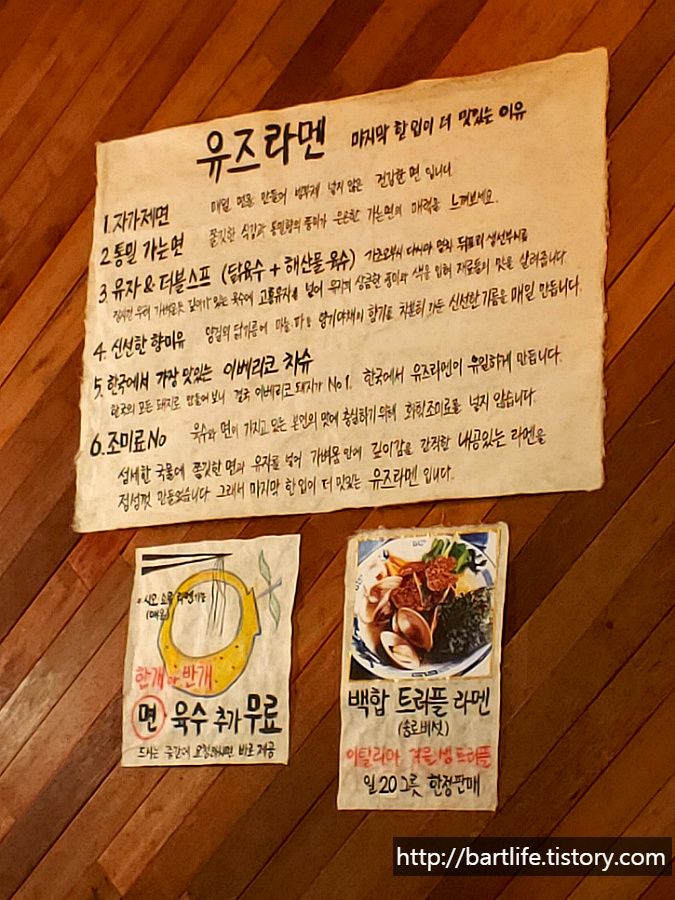 유즈라멘 마지막 한입이 더 맛있는 이유
1. 자가제면 매일 면을 만들어 방부제 넣지 않은 건강한 면 입니다
2. 통밀 가는면 쫄깃한 식감과 통밀향의 풍미가 은은한 가는면의 매력을 느껴보세요.
3. 유자 & 더블스프 (닭육수 + 해산물 육수) 가쓰오부시 다시마 멸치 뒤포리 생선부시로
깊이가 있는 육수에 고흥유자를 넣어 유자의 상큼한 풍미와 색을 입혀 재료들의 맛을 살려줍니다.
4. 신선한 향미유 양질의 닭기름에 마늘 파 등 향기야채의 향기를 차분히 가둔 신선한 기름을 매일 만듭니다.
5. 한국에서 가장 맛있는 이베리코 차슈
한국의 모든 돼지로 만들어 보니 결국 이베리코 돼지가 No1. 한국에서 유즈라멘이 유일하게 만듭니다.
6. 조미료 No 육수와 면이 가지고 있는 본연의 맛에 충실하기 위해 화학조미료를 넣지 않습니다.
섬세한 국물에 쫄깃한 면과 유자를 넣어 가벼움 안에 깊이감을 간직한 내공있는 라멘을
정성껏 만들었습니다 그래서 마지막 한입이 더 맛있는 유즈라멘 입니다.
* 시오 쇼유 라멘가능
(매운)
한개 or 반개
면 육수 추가 무료
드시는 중간에 요청하시면 바로 제공
백합 트러플 라멘
(송로버섯)
이탈리아 겨울 생 트러플
일 20그릇 한정판매
http://bartlife.tistory.com